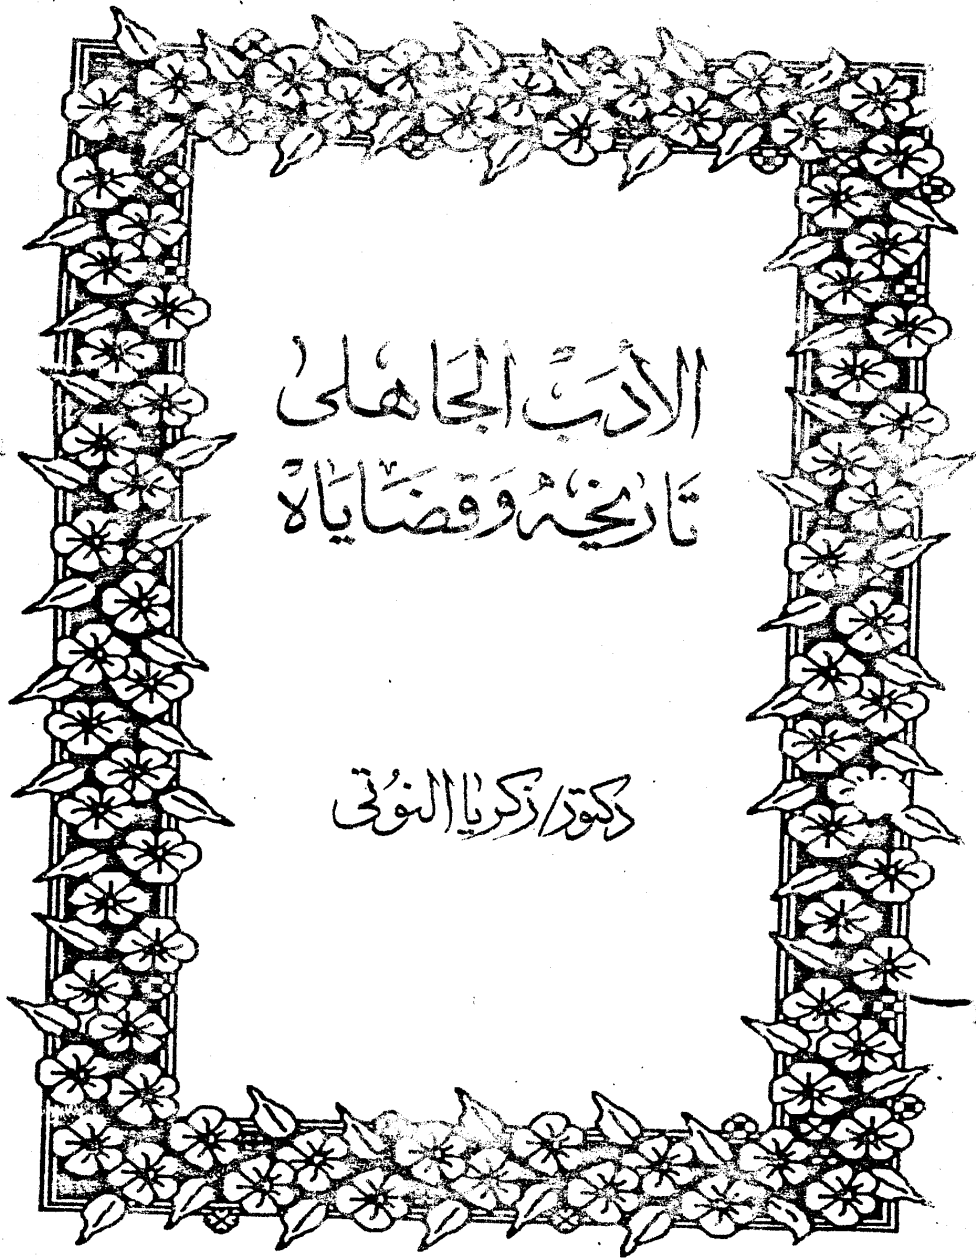 الأدب الجاهلى
تاريخه وقضاياه
دكتور/زكريا النوتى